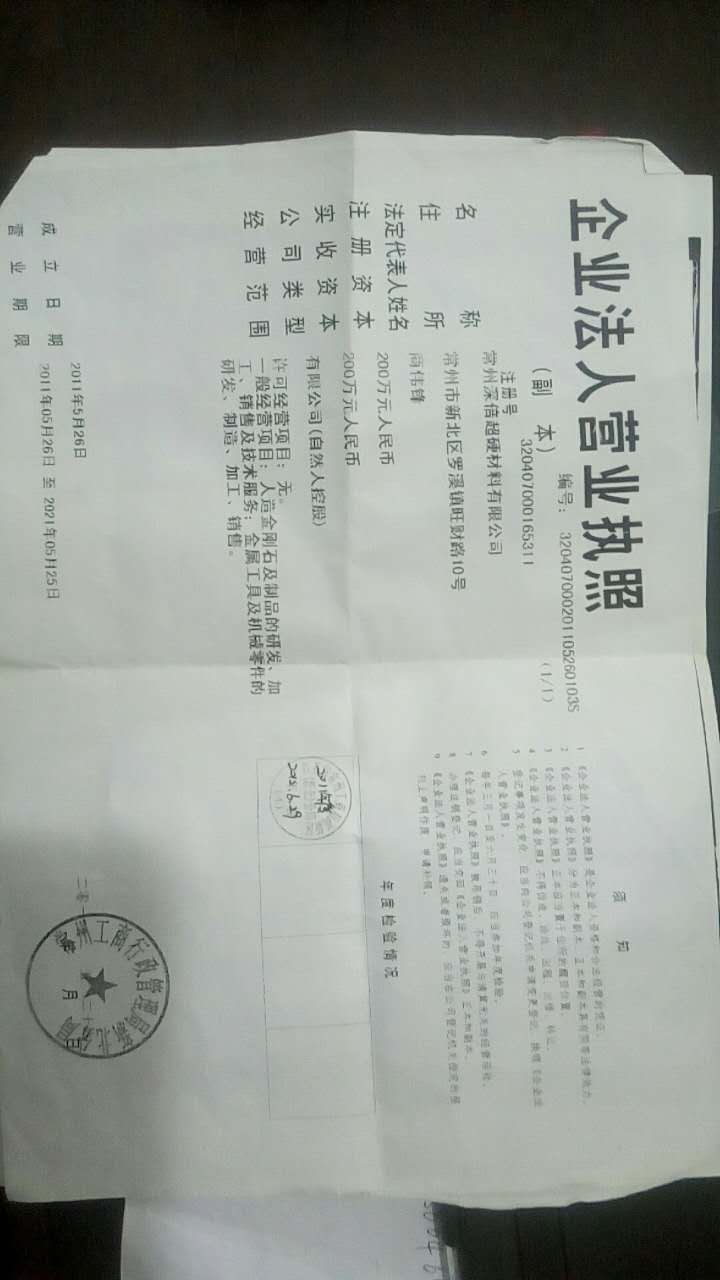 企业法人营业执照
(副 本)
编号: 320407000201105260103S
(1/1)
注册号
320407000165311
名 称
常州深倍超硬材料有限公司
住 所
常州市新北区罗溪镇旺财路10号
法定代表人姓名
商伟锋
注 册 资 本
200万元人民币
实 收 资 本
200万元人民币
公 司 类 型
有限公司(自然人控股)
经 营 范 围
许可经营项目: 无。
一般经营项目: 人造金刚石及制品的研发、加
工、销售及技术服务; 金属工具及机械零件的
研发、制造、加工、销售。
成 立 日 期
2011年5月26日
营 业 期 限
2011年05月26日 至 2021年05月25日
须 知
1 《企业法人营业执照》是企业法人资格和合法经营的凭证。
2 《企业法人营业执照》分为正本和副本, 正本和副本具有同等法律效力。
3 《企业法人营业执照》正本应当置于住所的醒目位置。
4 《企业法人营业执照》不得伪造、涂改、出租、出借、转让。
5 登记事项发生变化, 应当向公司登记机关申请变更登记, 换领《企业法
人营业执照》。
6 每年三月一日至六月三十日, 应当参加年度检验。
7 《企业法人营业执照》被吊销后, 不得开展与清算无关的经营活动。
8 办理注销登记, 应当交回《企业法人营业执照》正本和副本。
9 《企业法人营业执照》遗失或者毁坏的, 应当在公司登记机关指定的报
刊上声明作废, 申请补领。
年度检验情况
2012.6.29
工商行政管理局
年 月 日